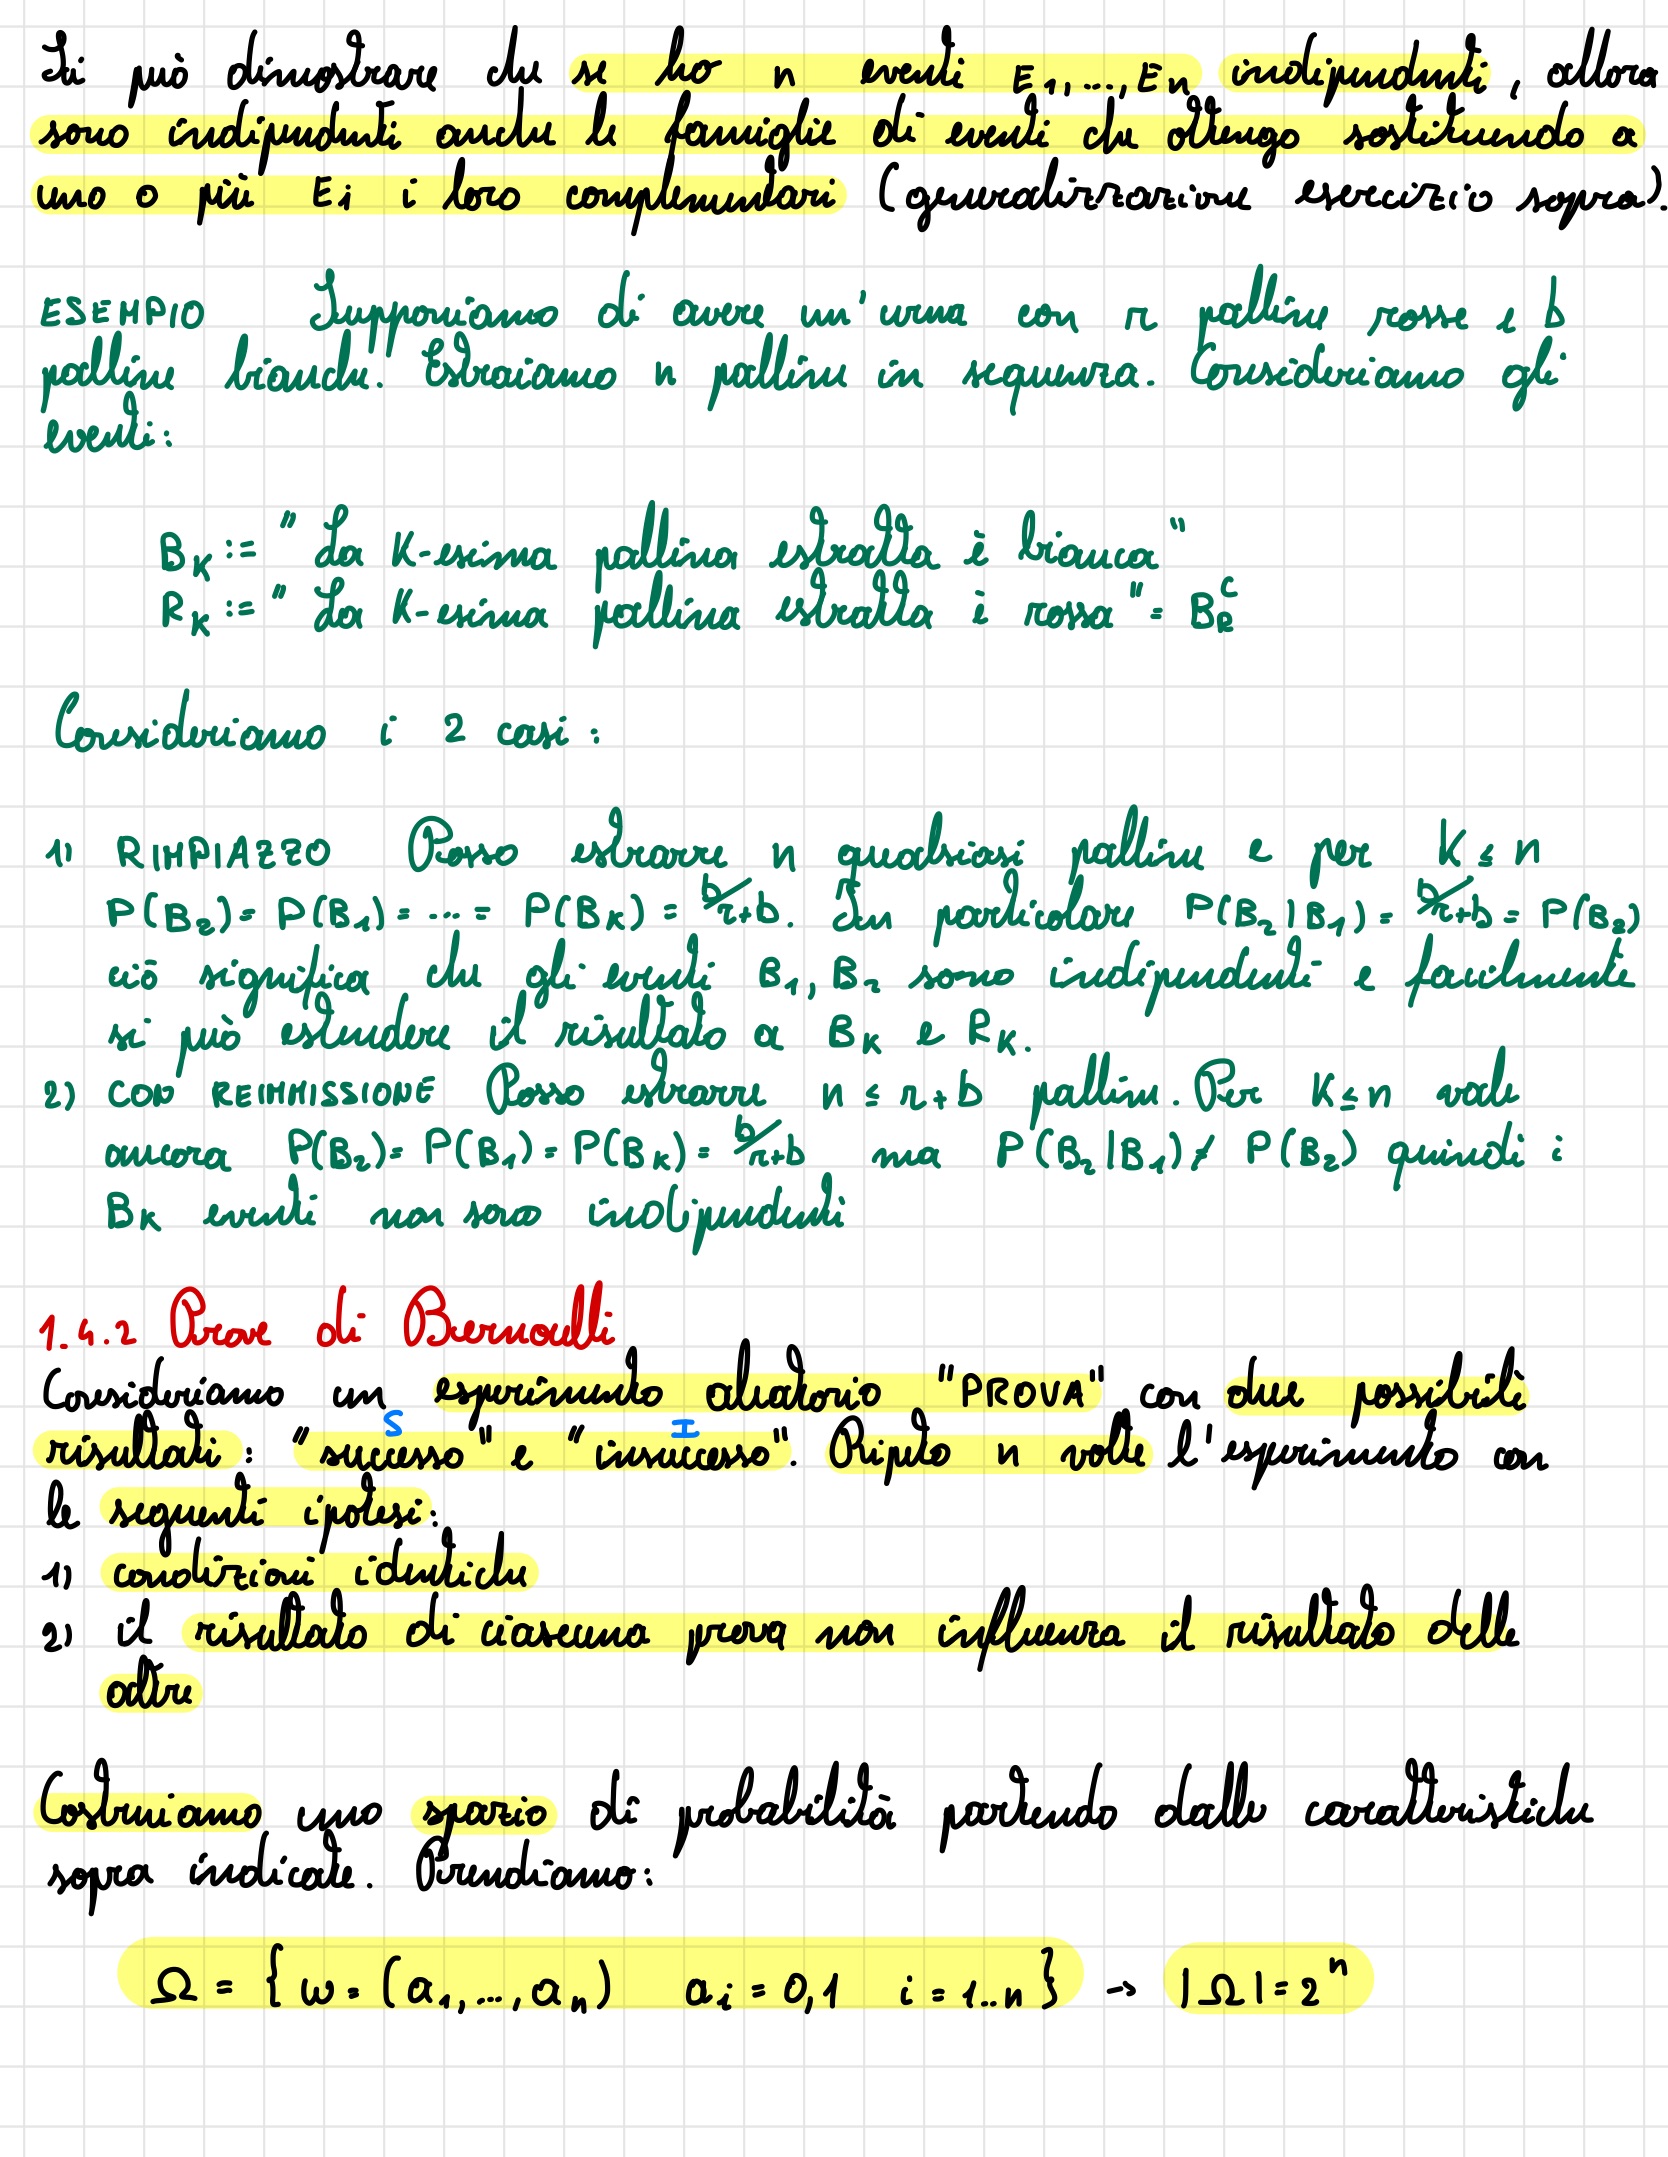 Si può dimostrare che se ho n eventi E₁,...,Eₙ indipendenti, allora
sono indipendenti anche le famiglie di eventi che ottengo sostituendo a
uno o più Ei i loro complementari (generalizzazione esercizio sopra).
ESEMPIO Supponiamo di avere un'urna con r palline rosse e b
palline bianche. Estraiamo n palline in sequenza. Consideriamo gli
eventi:
B_K := "La K-esima pallina estratta è bianca"
R_K := "La K-esima pallina estratta è rossa" = B_R^C
Consideriamo i 2 casi:
1) RIMPIAZZO Posso estrarre n qualsiasi palline e per K ≤ n
P(B₂) = P(B₁) = ... = P(B_K) = b/r+b. In particolare P(B₂|B₁) = b/r+b = P(B₂)
ciò significa che gli eventi B₁, B₂ sono indipendenti e facilmente
si può estendere il risultato a B_K e R_K.
2) CON REIMMISSIONE Posso estrarre n ≤ r+b palline. Per K ≤ n vale
ancora P(B₂) = P(B₁) = P(B_K) = b/r+b ma P(B₂|B₁) ≠ P(B₂) quindi i
B_K eventi non sono indipendenti
1.4.2 Prove di Bernoulli
Consideriamo un esperimento aleatorio "PROVA" con due possibili
S I
risultati: "successo" e "insuccesso". Ripeto n volte l'esperimento con
le seguenti ipotesi:
1) condizioni identiche
2) il risultato di ciascuna prova non influenza il risultato delle
altre
Costruiamo uno spazio di probabilità partendo dalle caratteristiche
sopra indicate. Prendiamo:
Ω = { ω = (a₁,...,aₙ) a_i = 0,1 i = 1..n } → |Ω| = 2ⁿ